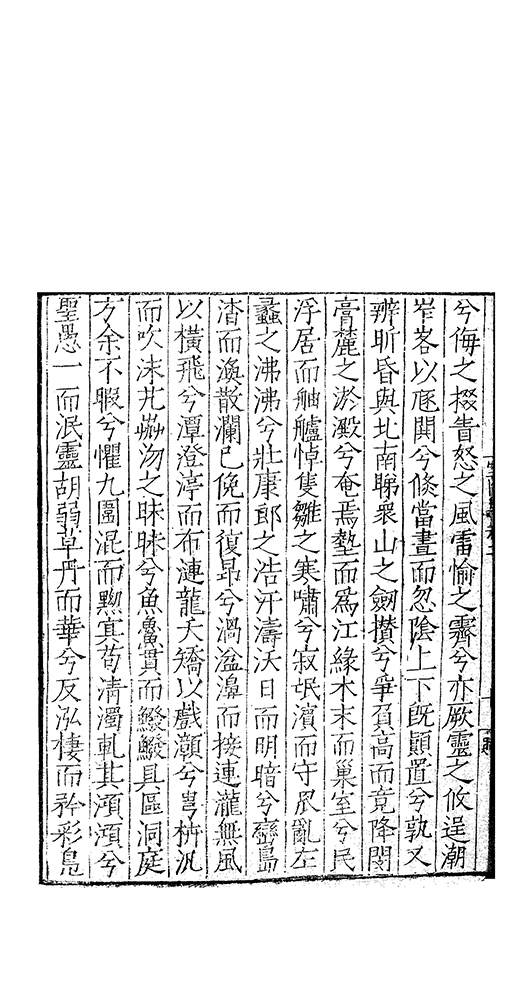 兮侮之掇眚怒之風雷愉之霽兮亦厥靈之攸逞潮
峉以㢠閧兮倏當晝而忽陰上下旣顚置兮孰又
辨昕昏與北南睇衆山之劒攅兮爭負高而竟降閔
膏麓之淤澱兮奄焉墊而爲江緣木末而巢室兮民
浮居而舳艫悼隻雛之寒嘯兮寂氓濱而守風亂左
蠡之沸沸兮壯康郎之浩汗濤沃日而明暗兮巒島
渣而渙散瀾已俛而復昻兮渦盆潒而接連瀧無風
以橫飛兮潭澄渟而布漣龍夭矯以戲灝兮枿汎
而吹沫芃茻沕之昧昧兮魚鱟貫而鱍鱍具區洞庭
方余不暇兮懼九圍混而黝寘茍淸濁軋其澒澒兮
聖愚一而泯靈胡弱草丹而華兮反泓棲而矜彩鳧